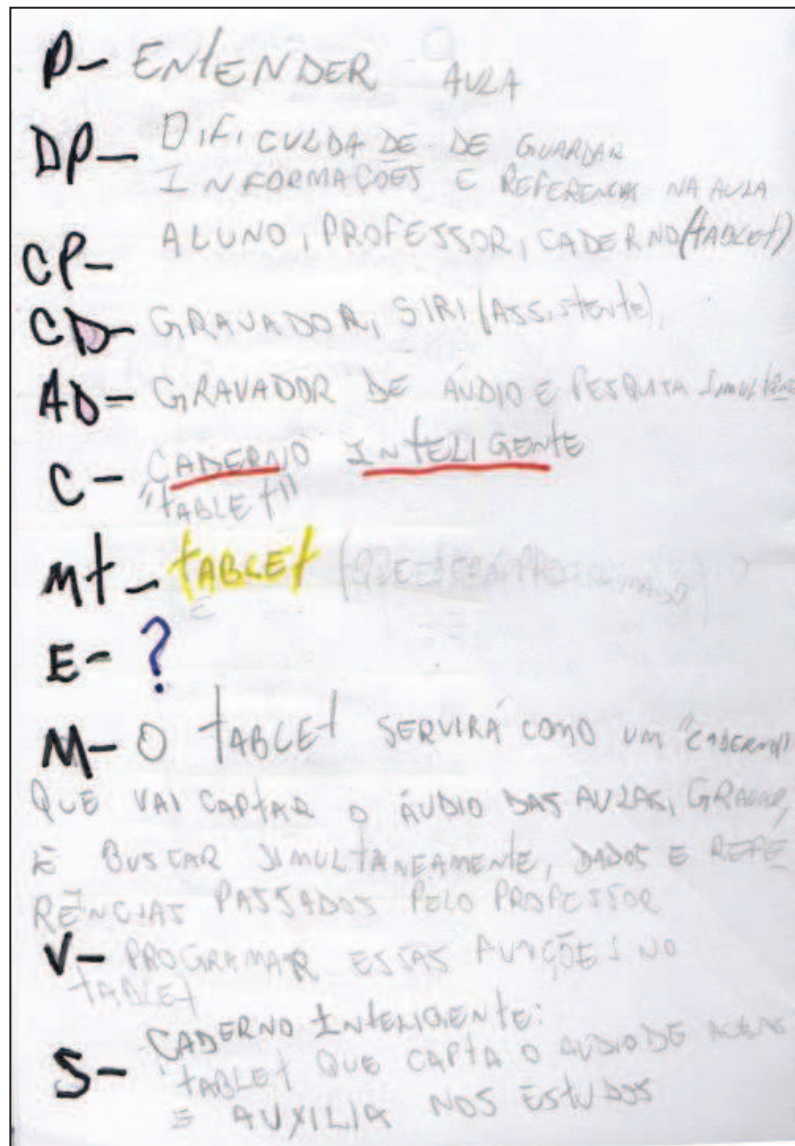 P- ENTENDER AULA
DP- DIFICULDADE DE GUARDAR
INFORMAÇÕES E REFERENCIAS NA AULA
CP- ALUNO, PROFESSOR, CADERNO (TABLET)
CD- GRAVADOR, SIRI (ASSISTENTE),
AD- GRAVADOR DE ÁUDIO E PESQUISA
C- CADERNO INTELIGENTE
"TABLET"
MT- TABLET (QUE SERÁ PROGRAMADO)
E- ?
M- O TABLET SERVIRÁ COMO UM "CADERNO"
QUE VAI CAPTAR O ÁUDIO DAS AULAS, GRAVAR,
E BUSCAR SIMULTANEAMENTE, DADOS E REFE
RÊNCIAS PASSADOS PELO PROFESSOR
V- PROGRAMAR ESTAS FUNÇÕES NO
TABLET
S- CADERNO INTELIGENTE:
TABLET QUE CAPTA O AUDIO DE AULAS
E AUXILIA NOS ESTUDOS